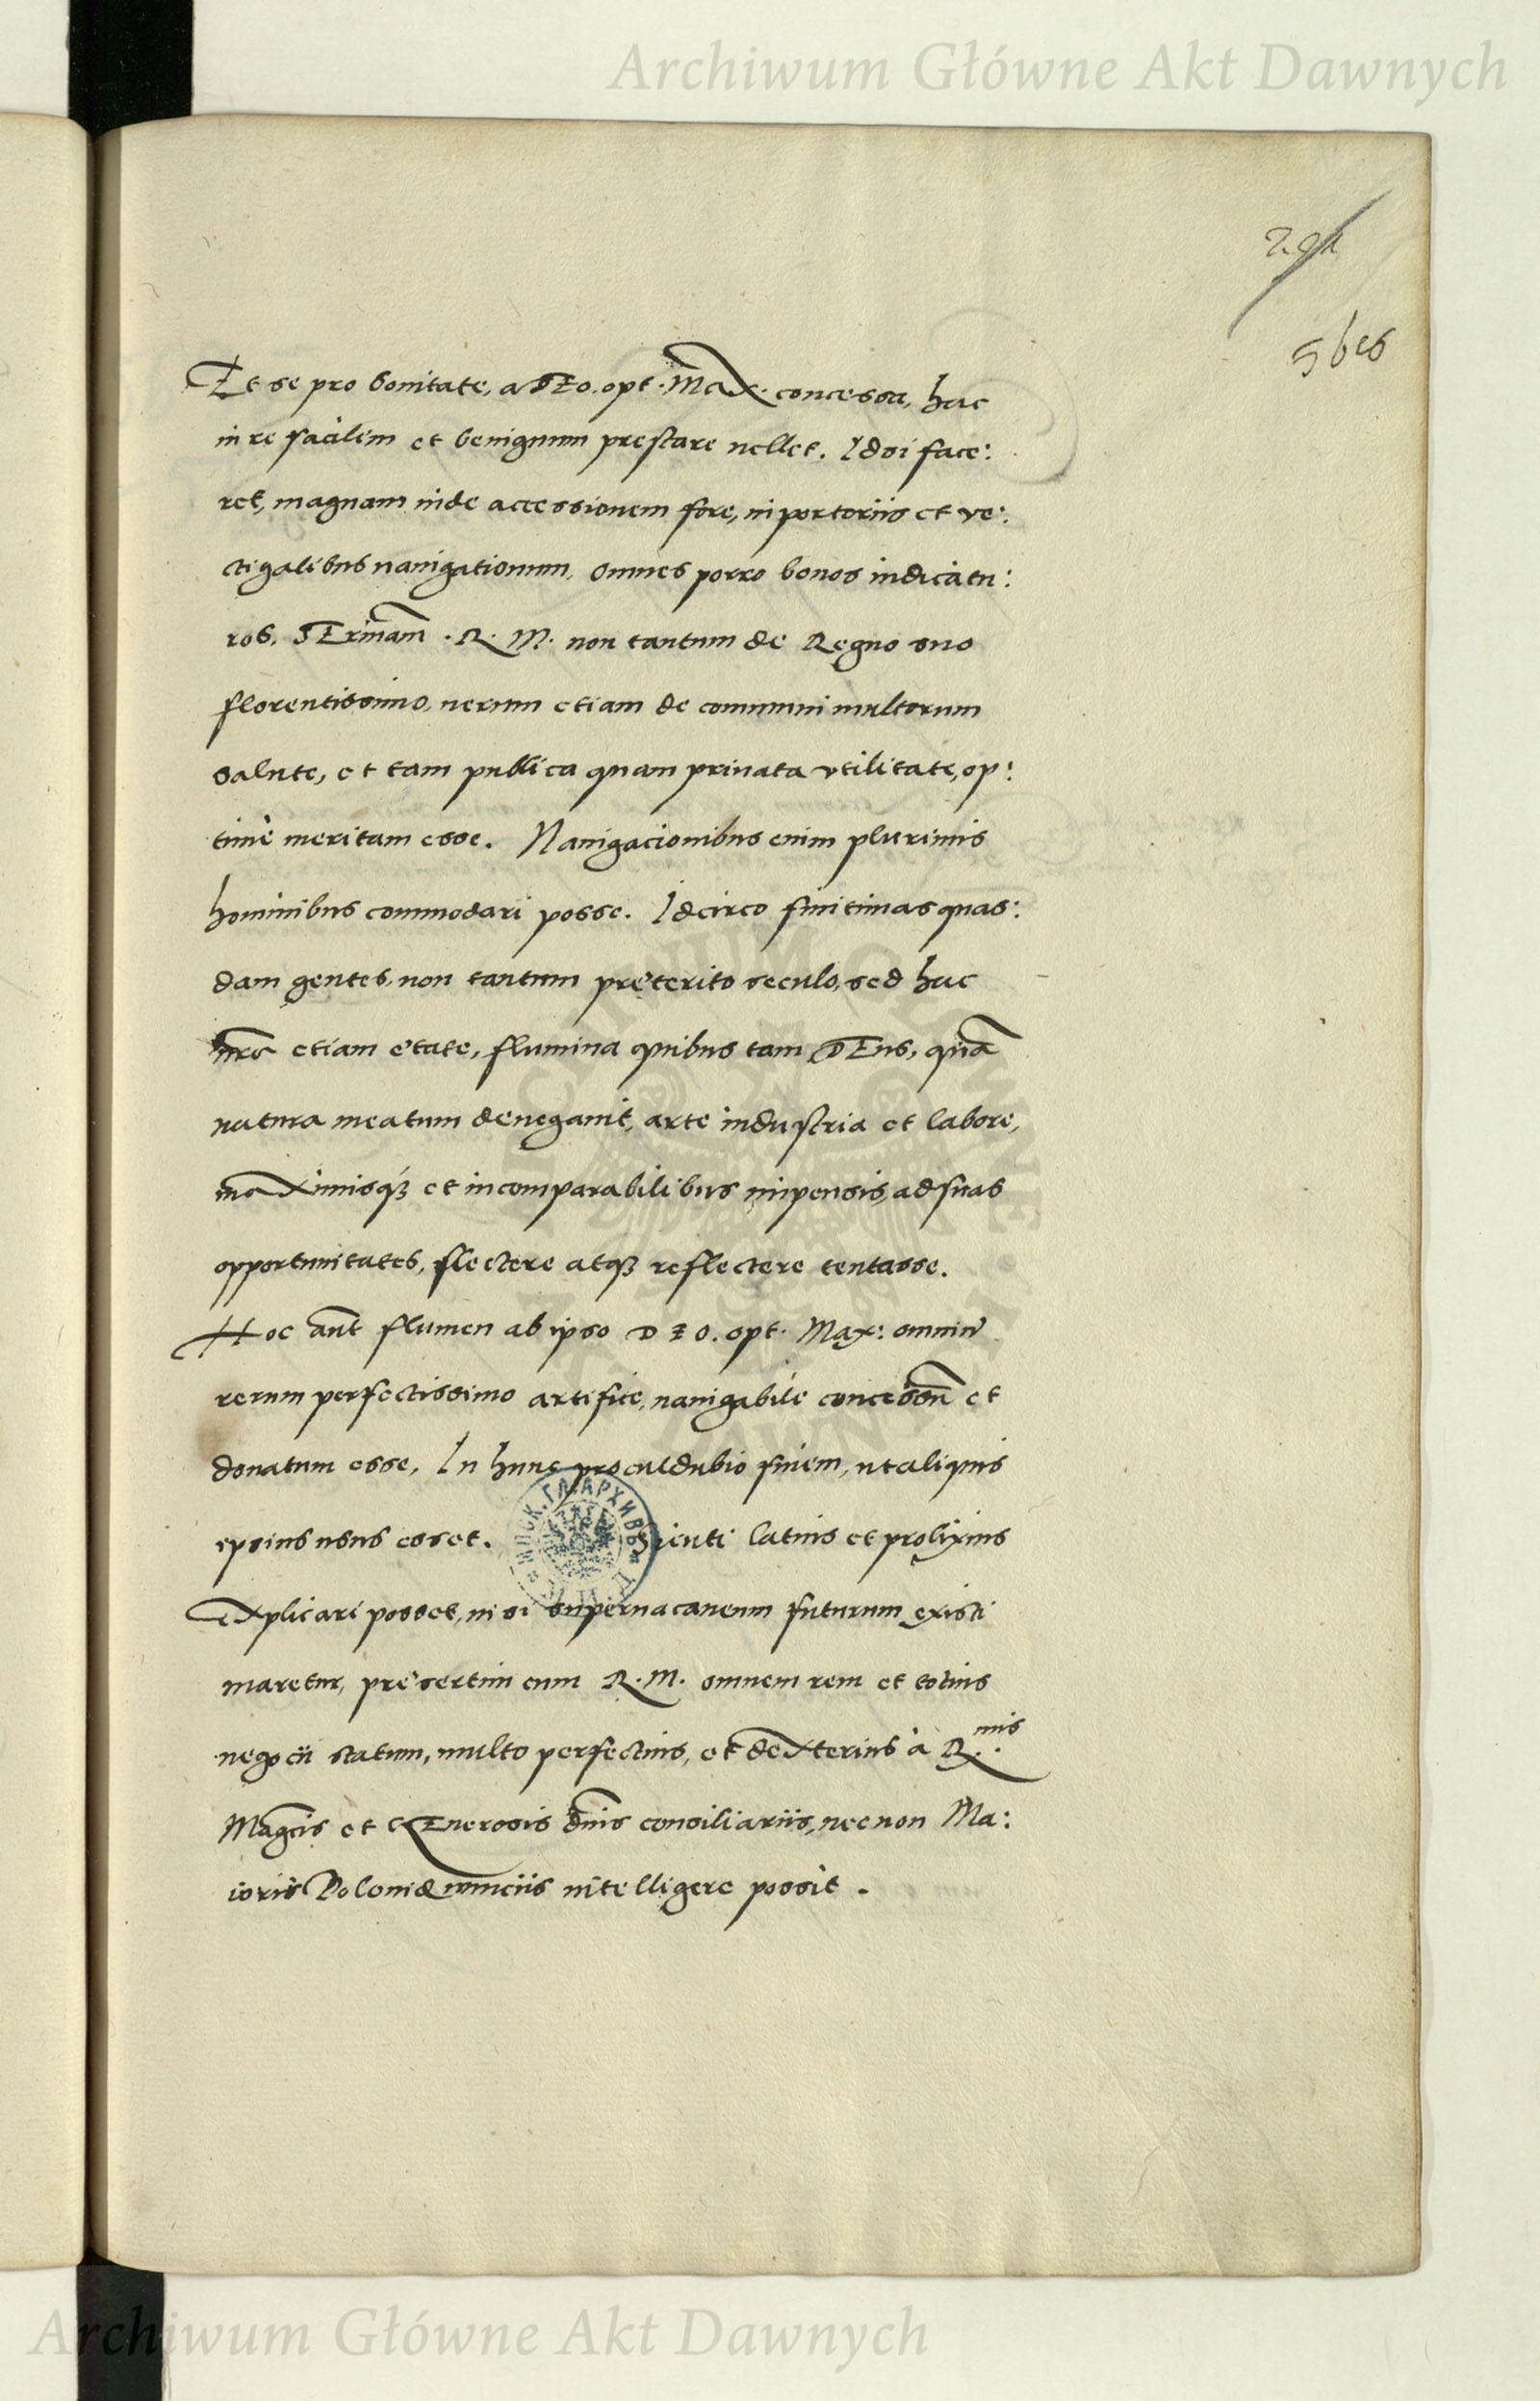 Archiwum Główne Akt Dawnych
5 bes
Et se pro bonitate, a DEo. opt. Max. concessa, hac
in re facilem et benignum prestare vellet. Id si face:
ret, magnam inde accessionem fore, in portoriis et ve:
ctigalibus navigationum, omnes porro bonos iudicatu:
ros, SErmam̄ . R. M. non tantum de Regno suo
florentissimo, uerum etiam de communi multorum
salute, et tam publica quam priuata vtilitate, op:
timè meritam esse. Nauigacionibus enim plurimis
hominibus commodari posse. Idcirco finitimas quas:
dam gentes, non tantum preterito seculo, sed hac
nr̄a etiam etate, flumina quibus tam DEus, quā
natura meatum denegauit, arte industria et labore,
maximisqꝫ et incomparabilibus impensis, ad suas
opportunitates, flectere atqꝫ reflectere tentasse.
Hoc aūt flumen ab ipso DEO. opt. Max: omniū
rerum perfectissimo artifice, nauigabile concessū et
donatum esse, In hunc proculdubio finem, ut aliquis
ipsius usus esset. Sicuti latius et prolixius
Explicari posset, ni si superuacaneum futurum existi
maretur, presertim cum R. M. omnem rem et totius
negocii statum, multo perfectius, et dexterius à R.mis
Magcis et GEnerosis dnis consiliariis, nec non Ma:
ioris Poloniæ nunciis intelligere possit.
Archiwum Główne Akt Dawnych